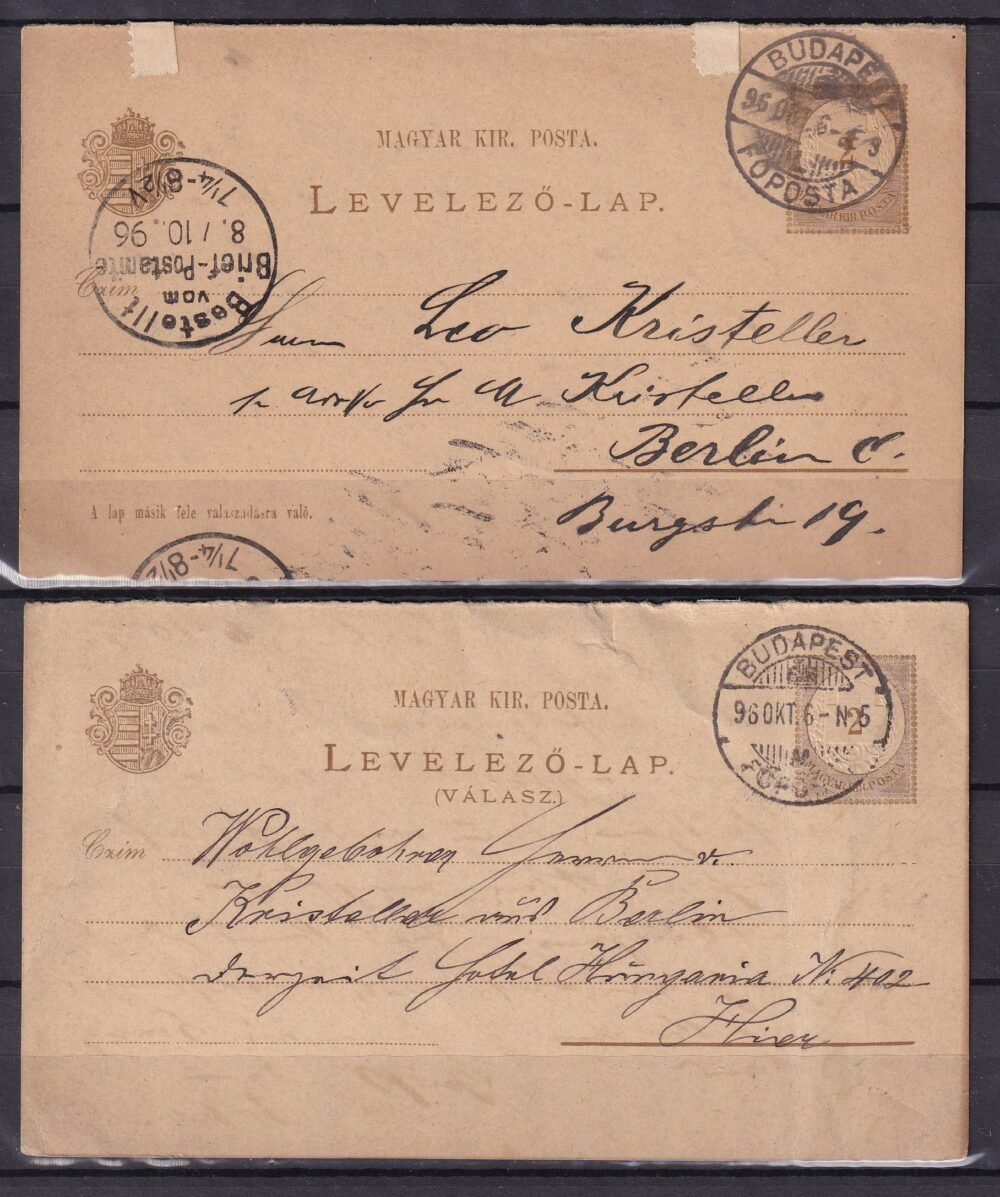 BUDAPEST
96 6-
FŐPOSTA
2
MAGYAR KIR. POSTA
MAGYAR KIR. POSTA.
LEVELEZŐ-LAP.
Bestellt
vom
Brief-Postamte
8. / 10. 96
7¼-8½V.
Czim
Herrn Leo Kristeller
A Kristeller
Berlin C.
A lap másik fele válaszadásra való.
Burgstr 19.
7¼-8½
BUDAPEST
96 OKT. 6-N. 5
FŐPO
2
MAGYAR KIR. POSTA
MAGYAR KIR. POSTA.
LEVELEZŐ-LAP.
(VÁLASZ.)
Czim Wohlgebohren Herrn v.
Kristeller aus Berlin
derzeit Hotel Hungaria N: 402
Hier